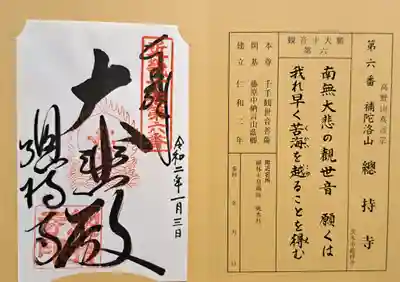 高野山真言宗
第六番 補陀洛山 總持寺
観音十大願
第六
南無大悲の観世音 願くは
我れ早く苦海を越ることを得む
本尊 千手観世音菩薩
開基 藤原中納言山蔭卿
建立 仁和二年
附近名所
年 月 日
大悲殿
總持寺
令和二年一月三日